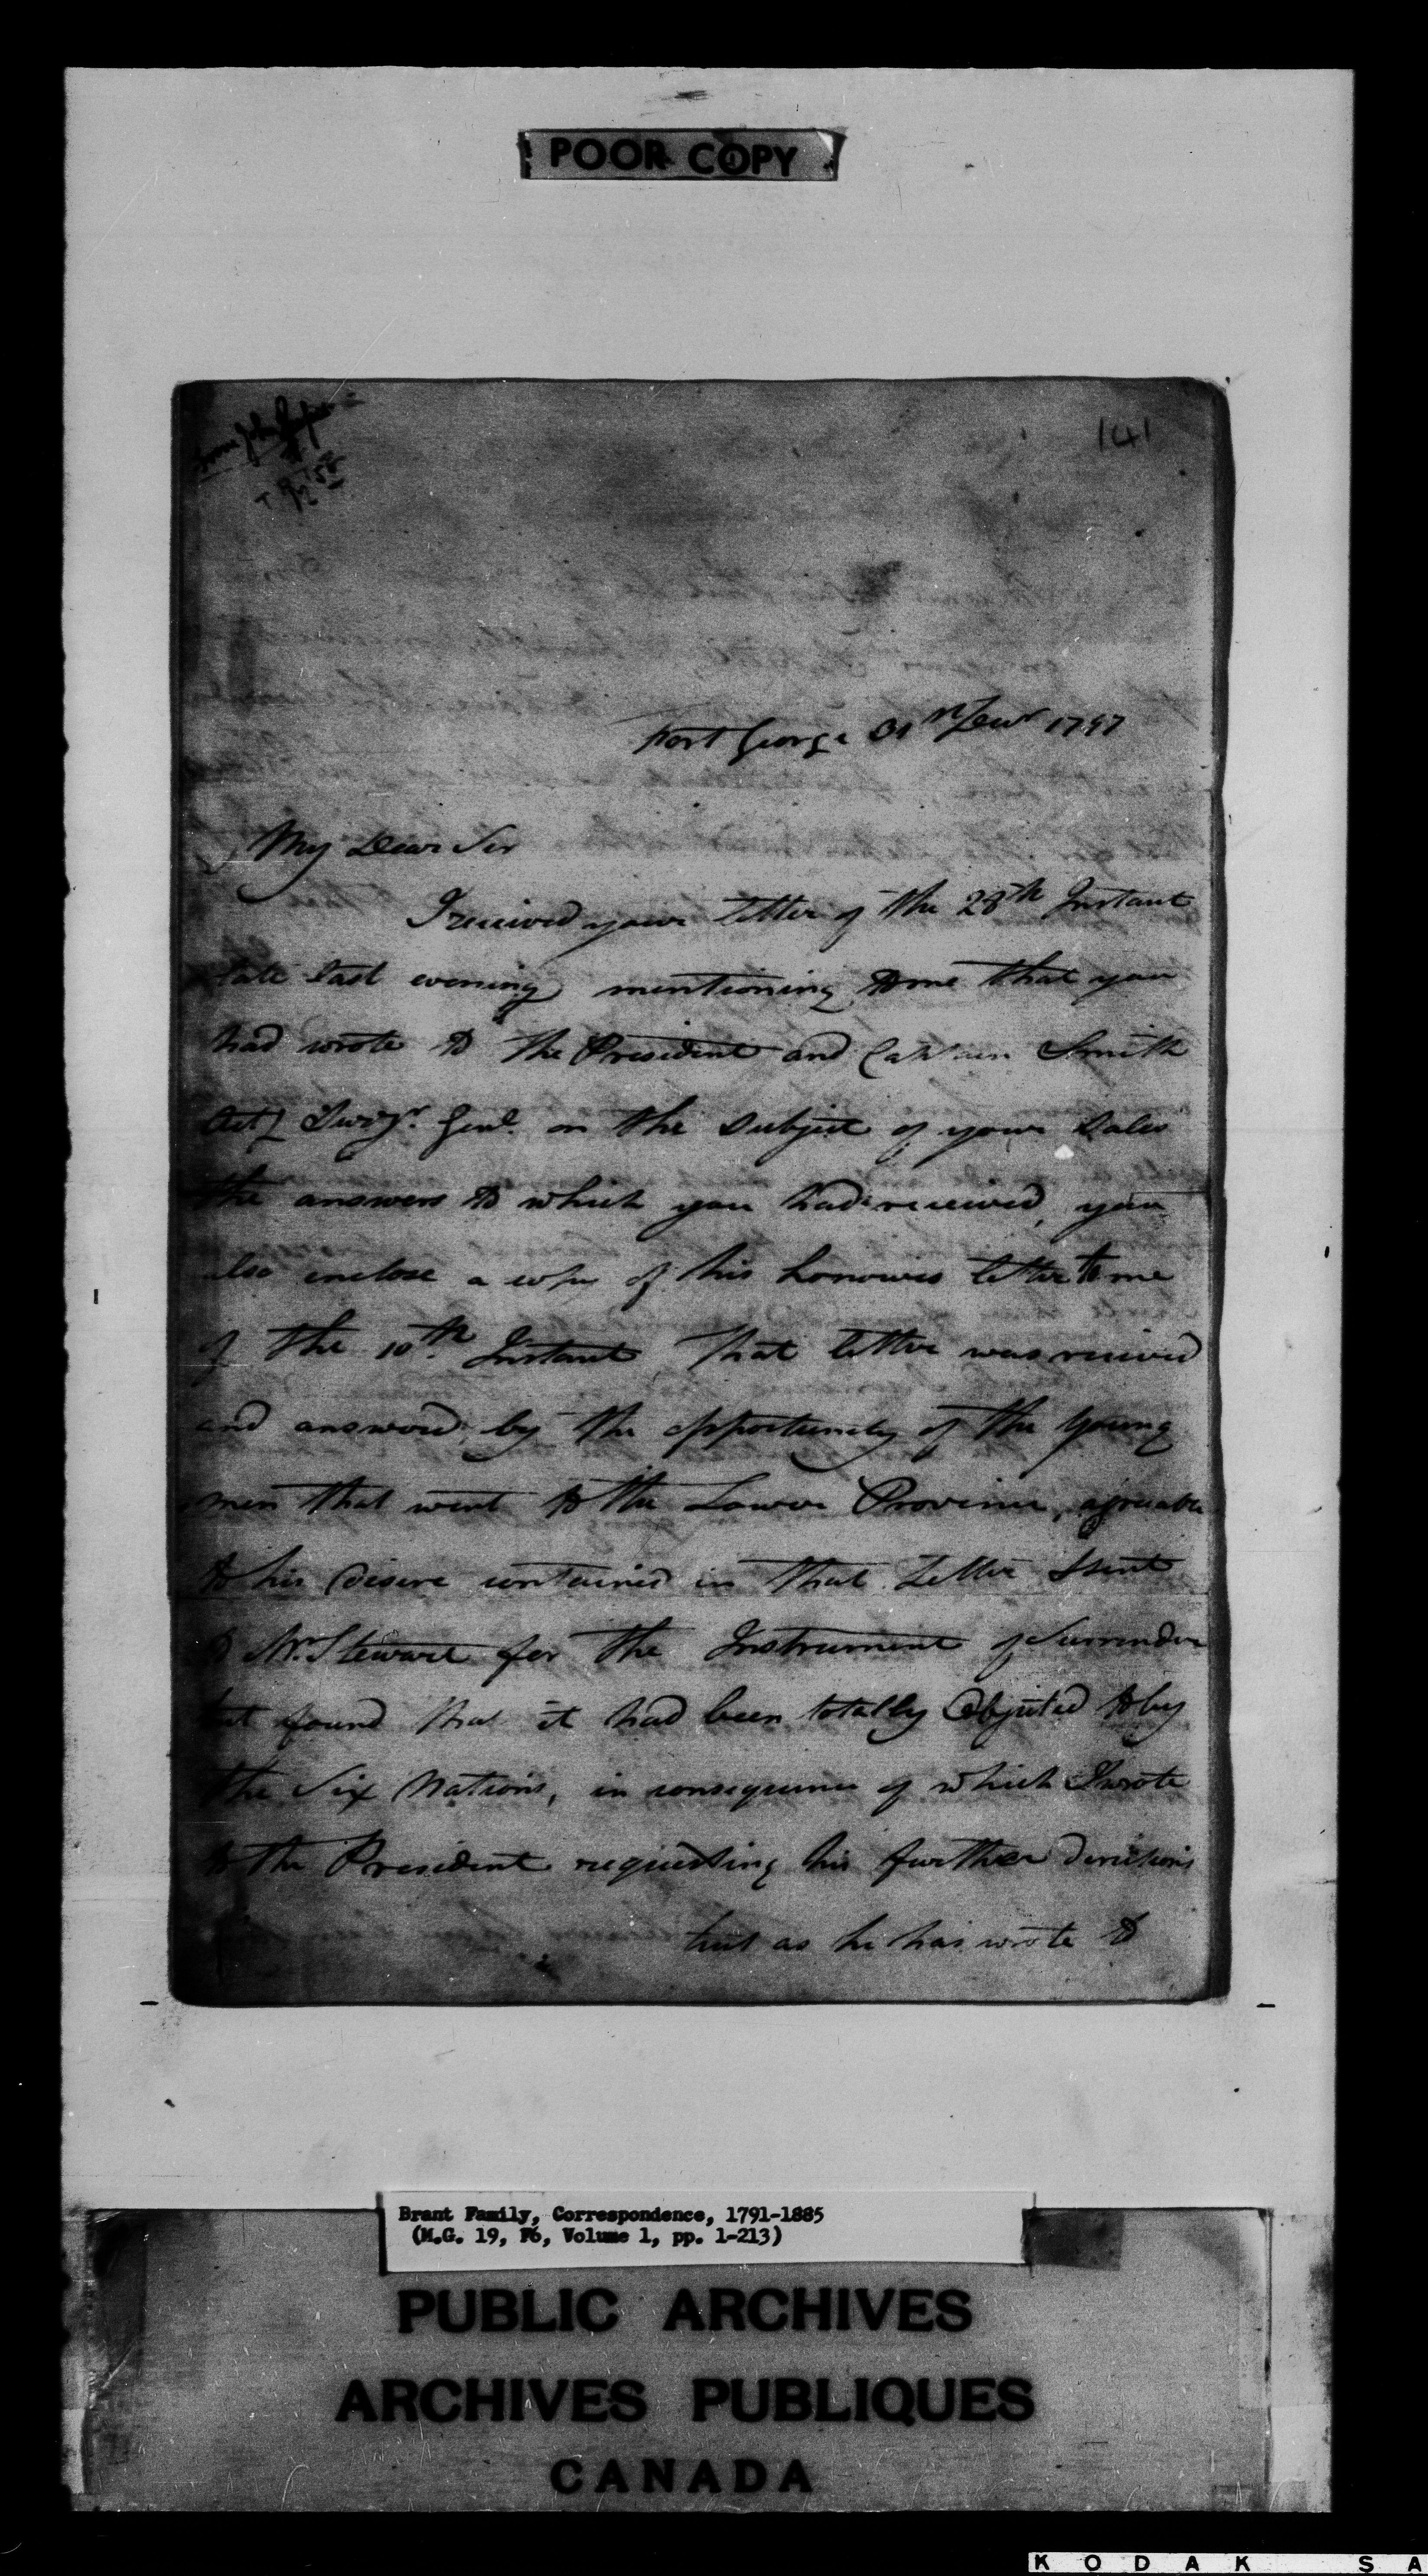 POOR COPY
141
Fort George 31st Decr 1797
My Dear Sir
I received your letter of the 28th Instant
late last evening mentioning to me that you
had wrote to the President and Captain Smith
Actg Survyr. Genl. on the subject of your Sales
the answers to which you had received, you
also inclose a copy of his honours letter to me
of the 10th Instant That letter was recived
and answered by the opportunity of the Young
men that went to the Lower Province, agreeable
to his Desire contained in that Letter I sent
to Mr. Stewart for the Instrument of Surrender
but found that it had been totally Objected to by
the Six Nations, in consequence of which I wrote
to the President requesting his further directions
but as he has wrote to
Brant Family, Correspondence, 1791-1885
(M.G. 19, F6, Volume 1, pp. 1-213)
PUBLIC ARCHIVES
ARCHIVES PUBLIQUES
CANADA
KODAK SA